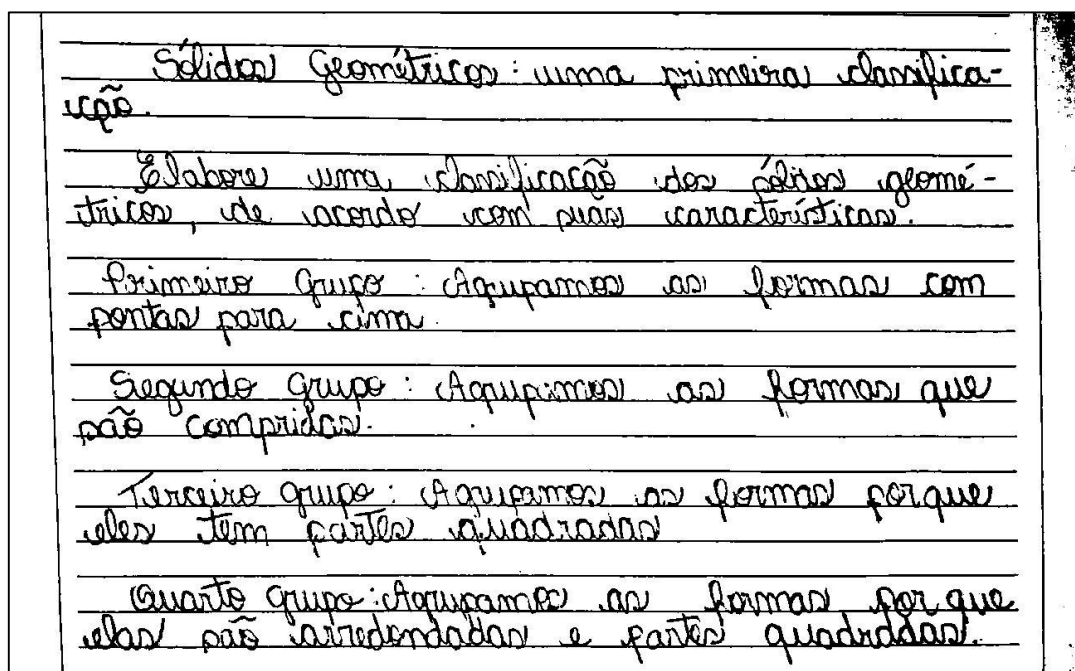 Sólidos Geométricos: uma primeira classifica-
ção.
Elabore uma classificação dos sólidos geomé-
tricos, de acordo com suas características.
Primeiro Grupo: Agrupamos as formas com
pontas para cima.
Segundo Grupo: Agrupamos as formas que
são compridas.
Terceiro grupo: Agrupamos as formas porque
eles tem partes quadradas
Quarto grupo: Agrupamos as formas por que
elas são arredondadas e partes quadradas.